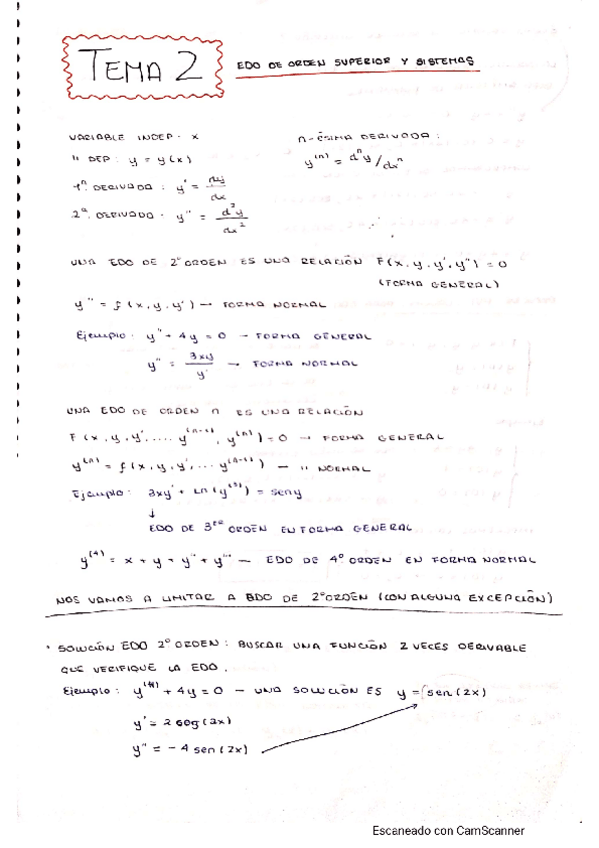 TEMA 2
EDO DE ORDEN SUPERIOR Y SISTEMAS
VARIABLE INDEP. X
n-ÉSIMA DERIVADA:
" DEP: y = y(x)
y⁽ⁿ⁾ = dⁿy/dxⁿ
1ª DERIVADA: y' = dy/dx
2ª DERIVADA. y'' = d²y/dx²
UNA EDO DE 2º ORDEN ES UNA RELACIÓN F(x, y, y', y'') = 0
(FORMA GENERAL)
y'' = f(x, y, y') → FORMA NORMAL
Ejemplo: y'' + 4y = 0 → FORMA GENERAL
y'' = 3xy/y' → FORMA NORMAL
UNA EDO DE ORDEN n ES UNA RELACIÓN
F(x, y, y', .... y⁽ⁿ⁻¹⁾, y⁽ⁿ⁾) = 0 → FORMA GENERAL
y⁽ⁿ⁾ = f(x, y, y', ... y⁽ⁿ⁻¹⁾) — " NORMAL
Ejemplo: 3xy' + Ln(y⁽³⁾) = seny
↓
EDO DE 3er ORDEN EN FORMA GENERAL
y⁽⁴⁾ = x + y + y'' + y''' — EDO DE 4º ORDEN EN FORMA NORMAL
NOS VAMOS A LIMITAR A EDO DE 2º ORDEN (CON ALGUNA EXCEPCIÓN)
· SOLUCIÓN EDO 2º ORDEN: BUSCAR UNA FUNCIÓN 2 VECES DERIVABLE
QUE VERIFIQUE LA EDO.
Ejemplo: + 4y = 0 — UNA SOLUCIÓN ES y = sen(2x)
y' = 2 cos(2x)
y'' = -4 sen(2x)
Escaneado con CamScanner